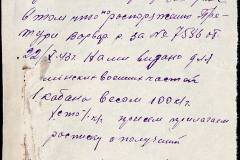 в том что по распоряжению Пре-
туры Варвар за № 7586 от
22/X-43г. Нами выдано для
воинских частей
1 кабана весом 100 кг.
(сто) кг. причем прилагаем
расписку о получении